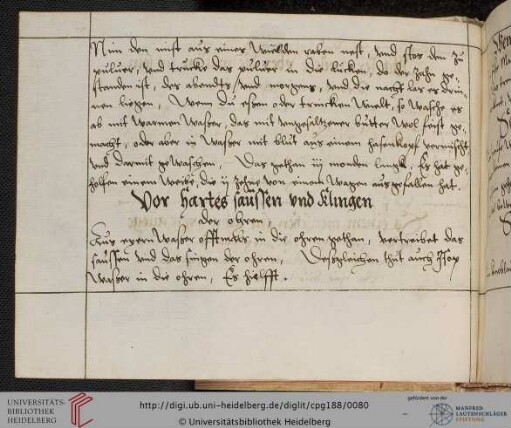 Nim den mist aus eines wielden raben nest, vnd stos den zu
puluer, vnd trucke das puluer in die lucken do der Zahn ge-
standen ist, des abendts vnd morgens, vnd die nacht las es drin-
nen liegen, Wenn du essen oder trincken wielt, so wasche es
ab mit warmen Wasser, das mit vngesaltzener butter wol feist ge-
macht, oder aber in Wasser mit blut aus einem hasenkopf vermischt
vnd darmit gewaschen, Das gethan iij monden lingk. Es hat ge-
holffen einem Weibe, die ij Zehne von einem Wagen ausgefallen hat.
Vor hartes saussen vnd Klingen
der ohren
Aus eyern Wasser offtmals in die ohren gethan, vertreibet das
saussen vnd das singen der ohren, Desgleichen thut auch Isop
Wasser in die ohren, Es hielfft.
UNIVERSITÄTS-
BIBLIOTHEK
HEIDELBERG
http://digi.ub.uni-heidelberg.de/diglit/cpg188/0080
© Universitätsbibliothek Heidelberg
gefördert von der
MANFRED
LAUTENSCHLÄGER
STIFTUNG